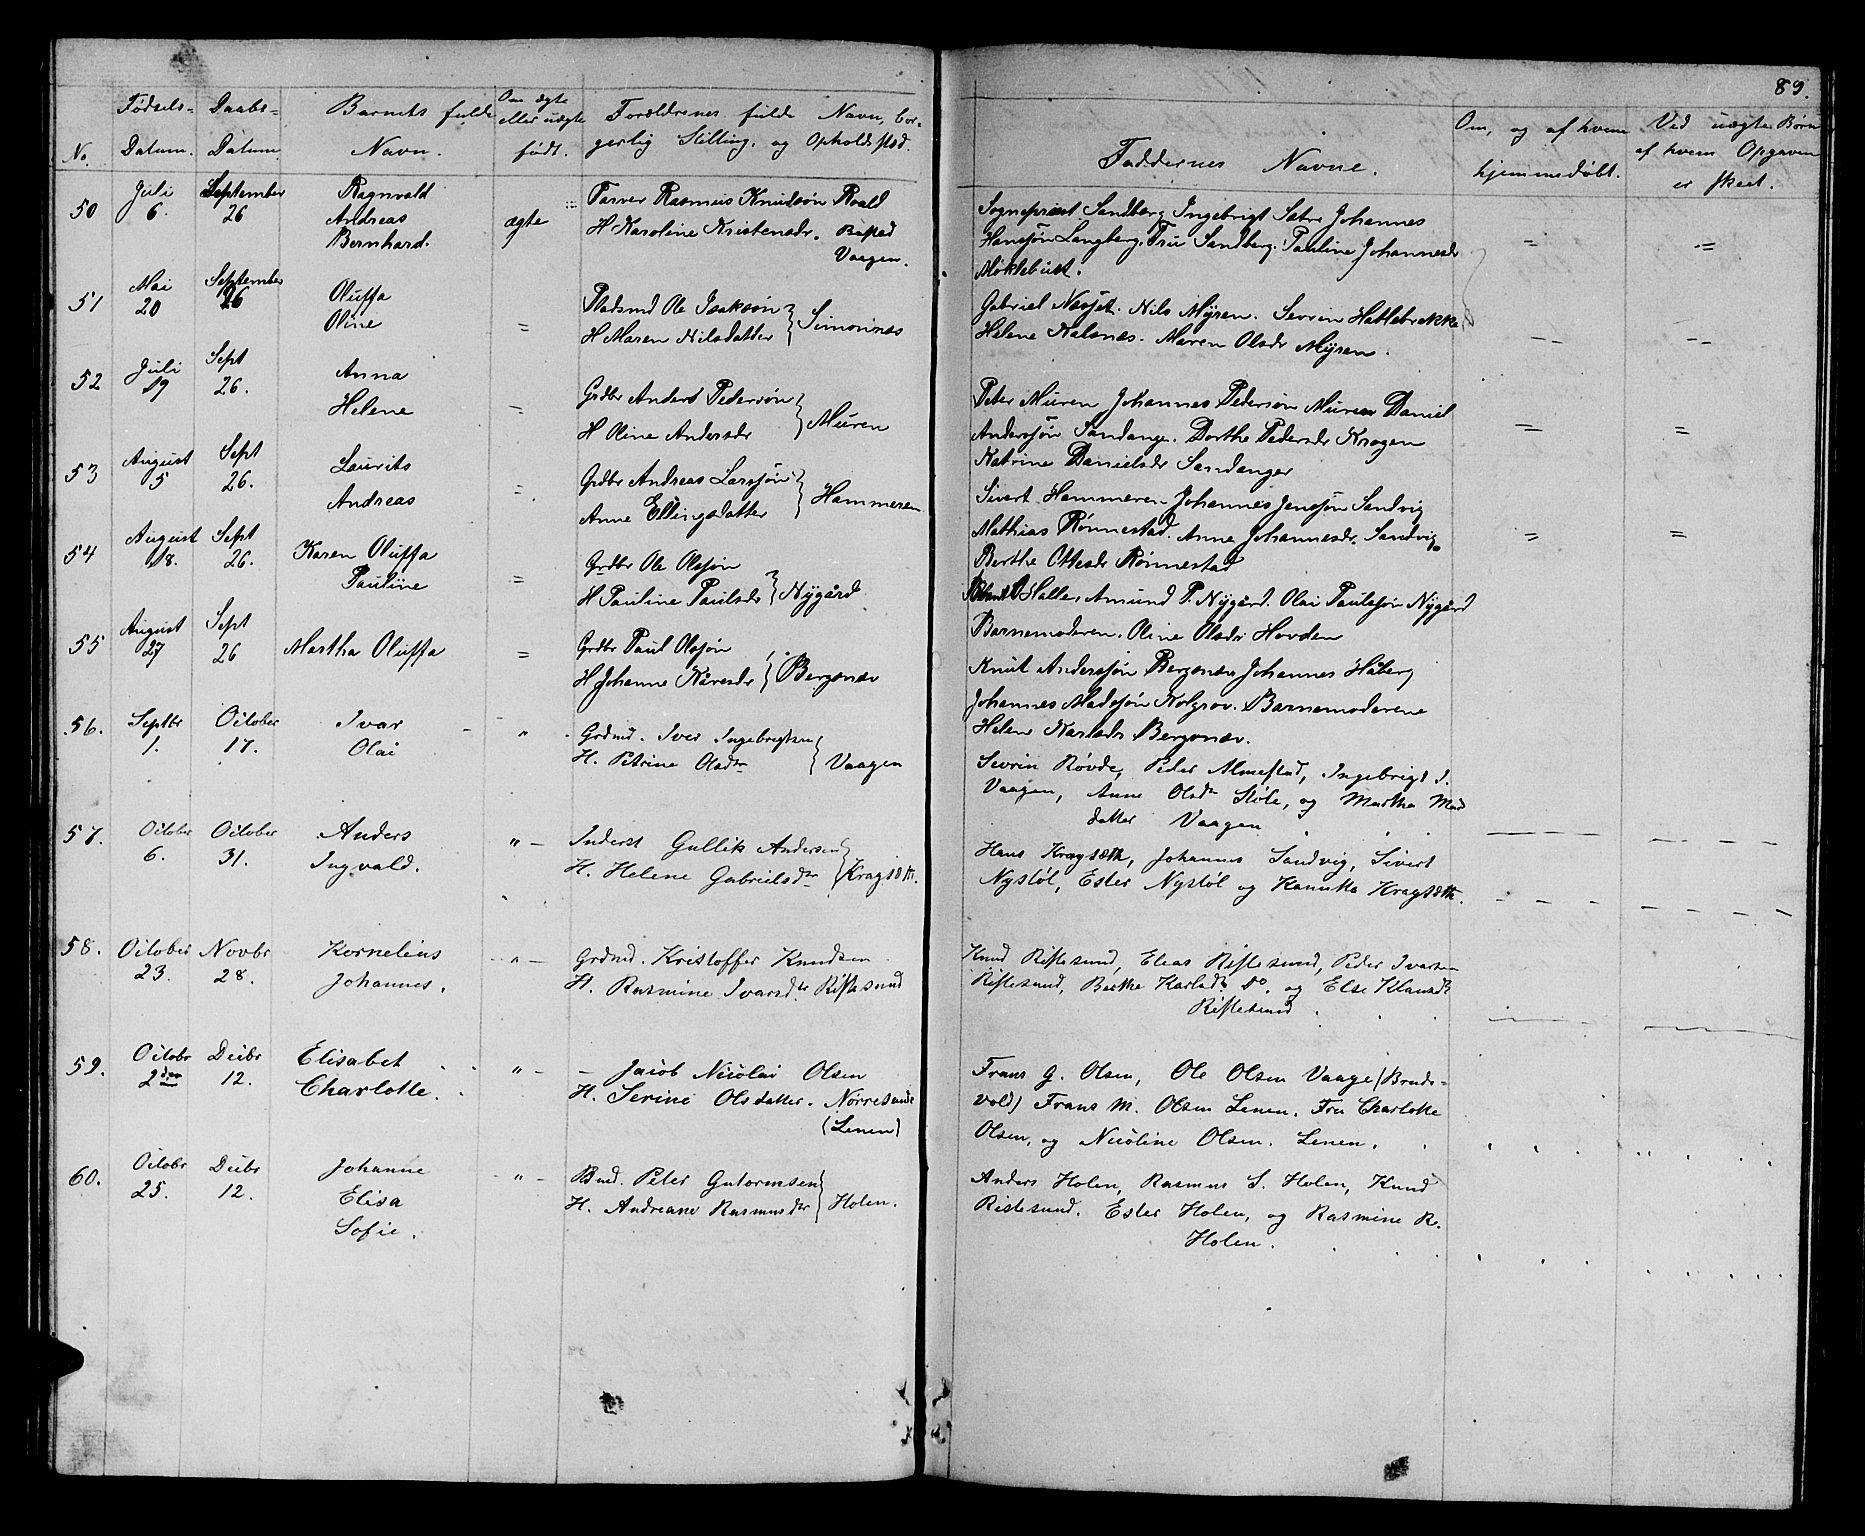 89.
No.
Fødsels-
Datum.
Daabs-
Datum
Barnets fulde
Navn.
Om ægte
eller uægte
født.
Forældrenes fulde Navn, bor-
gerlig Stilling, og Opholdssted.
Faddernes Navne.
Om, og af hvem
hjemmedøbt.
Ved uægte Børn
af hvem Opgaven
er skeet.
50
Juli
6.
September
26
Ragnvald
Andreas
Bernhard.
ægte
Farver Rasmus Knudsøn Roald
H Karoline Kristensdr. Bustad
Vaagen.
Sogneprest Sandberg, Ingebrigt Sætre Johannes
Hanssøn Langberg. Fru Sandberg. Pauline Johannesdr
Møklebust.
51
Mai
20
September
26
Oluffa
Oline
Pladsmd Ole Isaksøn
H Maren Nilsdatter } Simonnes
Gabriel Næsset. Nils Myren. Sevrin Hatlebrekke
Helene Halsnæs. Maren Olsdr Myren.
52
Juli
19
Sept
26.
Anna
Helene
Grdbr Anders Pedersøn
H Oline Andersdr } Muren
Peter Muren Johannes Pedersøn Muren Daniel
Anderssøn Sandange. Dorthe Pedersdr Kragen
Katrine Danielsdr Sandanger
53
August
5
Sept
26.
Laurits
Andreas
Grdbr Andreas Larssøn
Anne Ellingsdatter } Hammeren
Sivert Hammeren Johannes Jenssøn Sandvig
Mathias Rønnestad. Anne Johannesdr. Sandvig
Berthe Ottesdr Rønnestad
54
August
18.
Sept
26.
Karen Oluffa
Pauline
Grdbr Ole Olssøn
H Pauline Paulsdr } Nygård
Halle, Amund P. Nygård. Olai Paulssøn Nygård
Barnemoderen. Oline Olsdr Hovden
55
August
27
Sept
26
Martha Oluffa
Grdbr Paul Olssøn
H Johanne Kåresdr } Bergsnæv
Knut Anderssøn Bergsnæv Johannes Håberg
Johannes Madssøn Kolgrov. Barnemoderene
Helene Karlsdr Bergsnæv.
56.
Septbr
1.
October
17.
Ivar
Olai
Grdmd. Iver Ingebrigtsen
H. Petrine Olsdtr } Vaagen
Sevrin Røvde, Peder Almestad, Ingebrigt I.
Vaagen, Anne Olsdtr Støle, og Martha Mad
datter Vaagen
57.
October
6.
October
31.
Anders
Ingvald.
Inderst Gullik Andersen
H. Helene Gabrielsdtr } Kragsæth.
Hans Kragsæth, Johannes Sandvig, Sivert
Nystøl, Ester Nystøl og Kanutta Kragsæth.
58.
October
23.
Novbr
28.
Kornelius
Johannes.
Grdmd. Kristoffer Knudsen
H. Rasmine Ivarsdtr. Ristesund
Knud Ristesund, Elias Ristesund, Peder Ivarsen
Ristesund, Berthe Karlsdtr do. og Else Klausdtr
Ristesund.
59.
Octobr
2den
Decbr
12.
Elisabet
Charlotte.
Jacob Nicolai Olsen
H. Serine Olsdatter. Nørresunde
(Lenen)
Frans G. Olsen, Ole Olsen Vaage (Brude-
vold) Frans M. Olsen Lenen. Fru Charlotte
Olsen, og Nicoline Olsen. Lenen.
60.
Octobr
25.
Decbr
12.
Johanne
Elisa
Sofie.
Bmd. Peter Gutormsen
H. Andreane Rasmusdtr } Holen.
Anders Holen, Rasmus S. Holen, Knud
Ristesund. Ester Holen, og Rasmine R.
Holen.